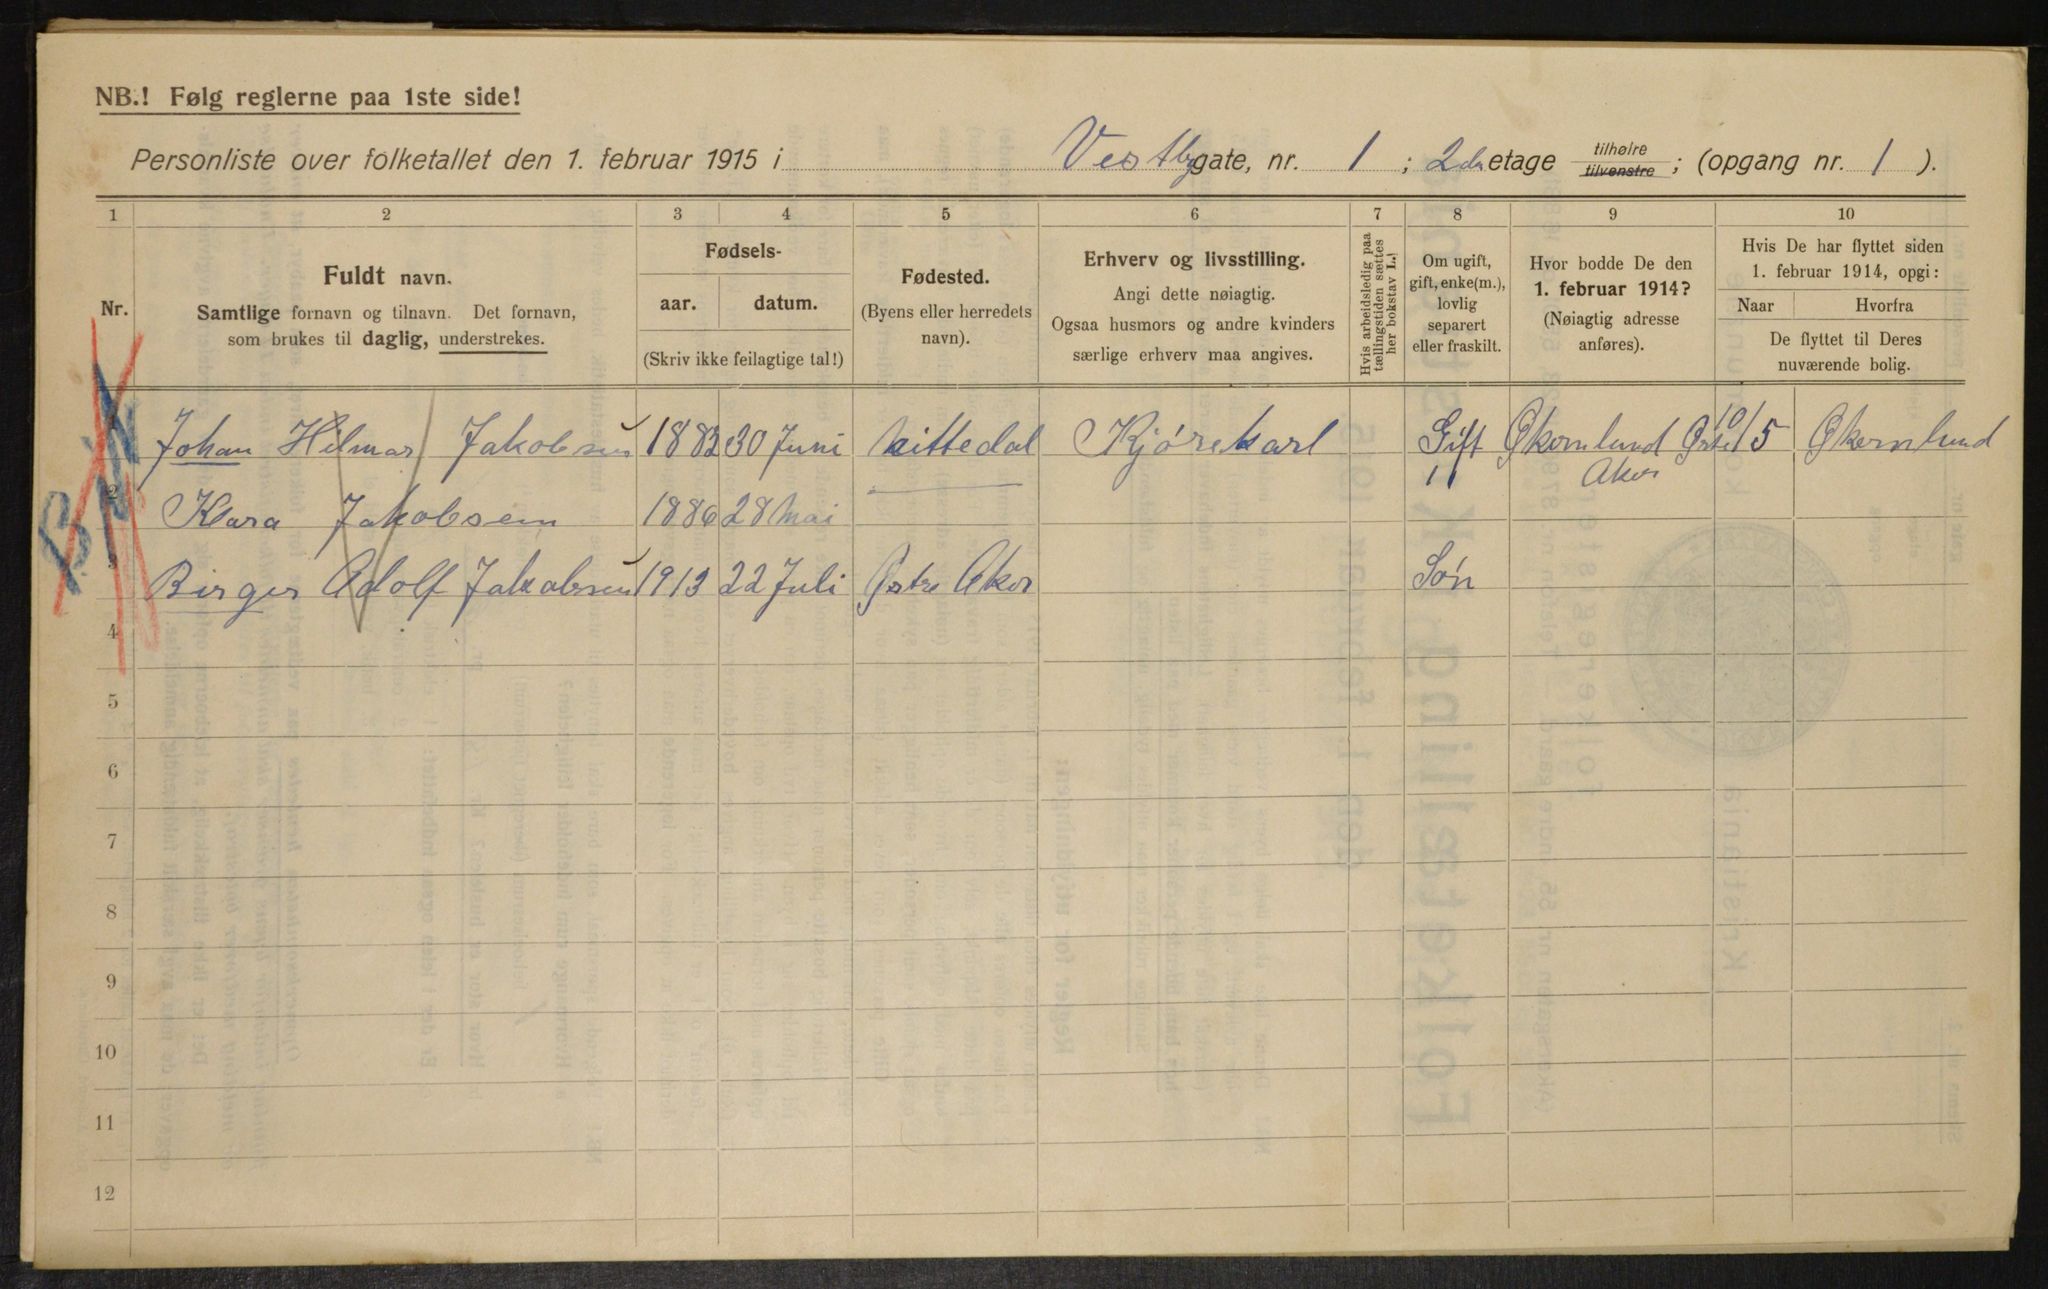 NB.! Følg reglerne paa 1ste side!
Personliste over folketallet den 1. februar 1915 i Vestbygate, nr. 1; 2den etage tilhøire tilvenstre; (opgang nr. 1).
1 2 3 4 5 6 7 8 9 10
Nr.
Fuldt navn.
Samtlige fornavn og tilnavn. Det fornavn,
som brukes til daglig, understrekes.
Fødsels-
aar. datum.
(Skriv ikke feilagtige tal!)
Fødested.
(Byens eller herredets
navn).
Erhverv og livsstilling.
Angi dette nøiagtig.
Ogsaa husmors og andre kvinders
særlige erhverv maa angives.
Hvis arbeidsledig paa
tællingstiden sættes
her bokstav L.!
Om ugift,
gift, enke(m.),
lovlig
separert
eller fraskilt.
Hvor bodde De den
1. februar 1914?
(Nøiagtig adresse
anføres).
Hvis De har flyttet siden
1. februar 1914, opgi:
Naar Hvorfra
De flyttet til Deres
nuværende bolig.
Johan Hilmar Jakobsen 1883 30 Juni Nittedal Kjørekarl Gift Økernlund Østre Aker Økernlund
2 Klara Jakobsen 1886 28 Mai — "
3 Birger Adolf Jakobsen 1913 22 Juli Østre Aker Søn
4
5
6
7
8
9
10
11
12